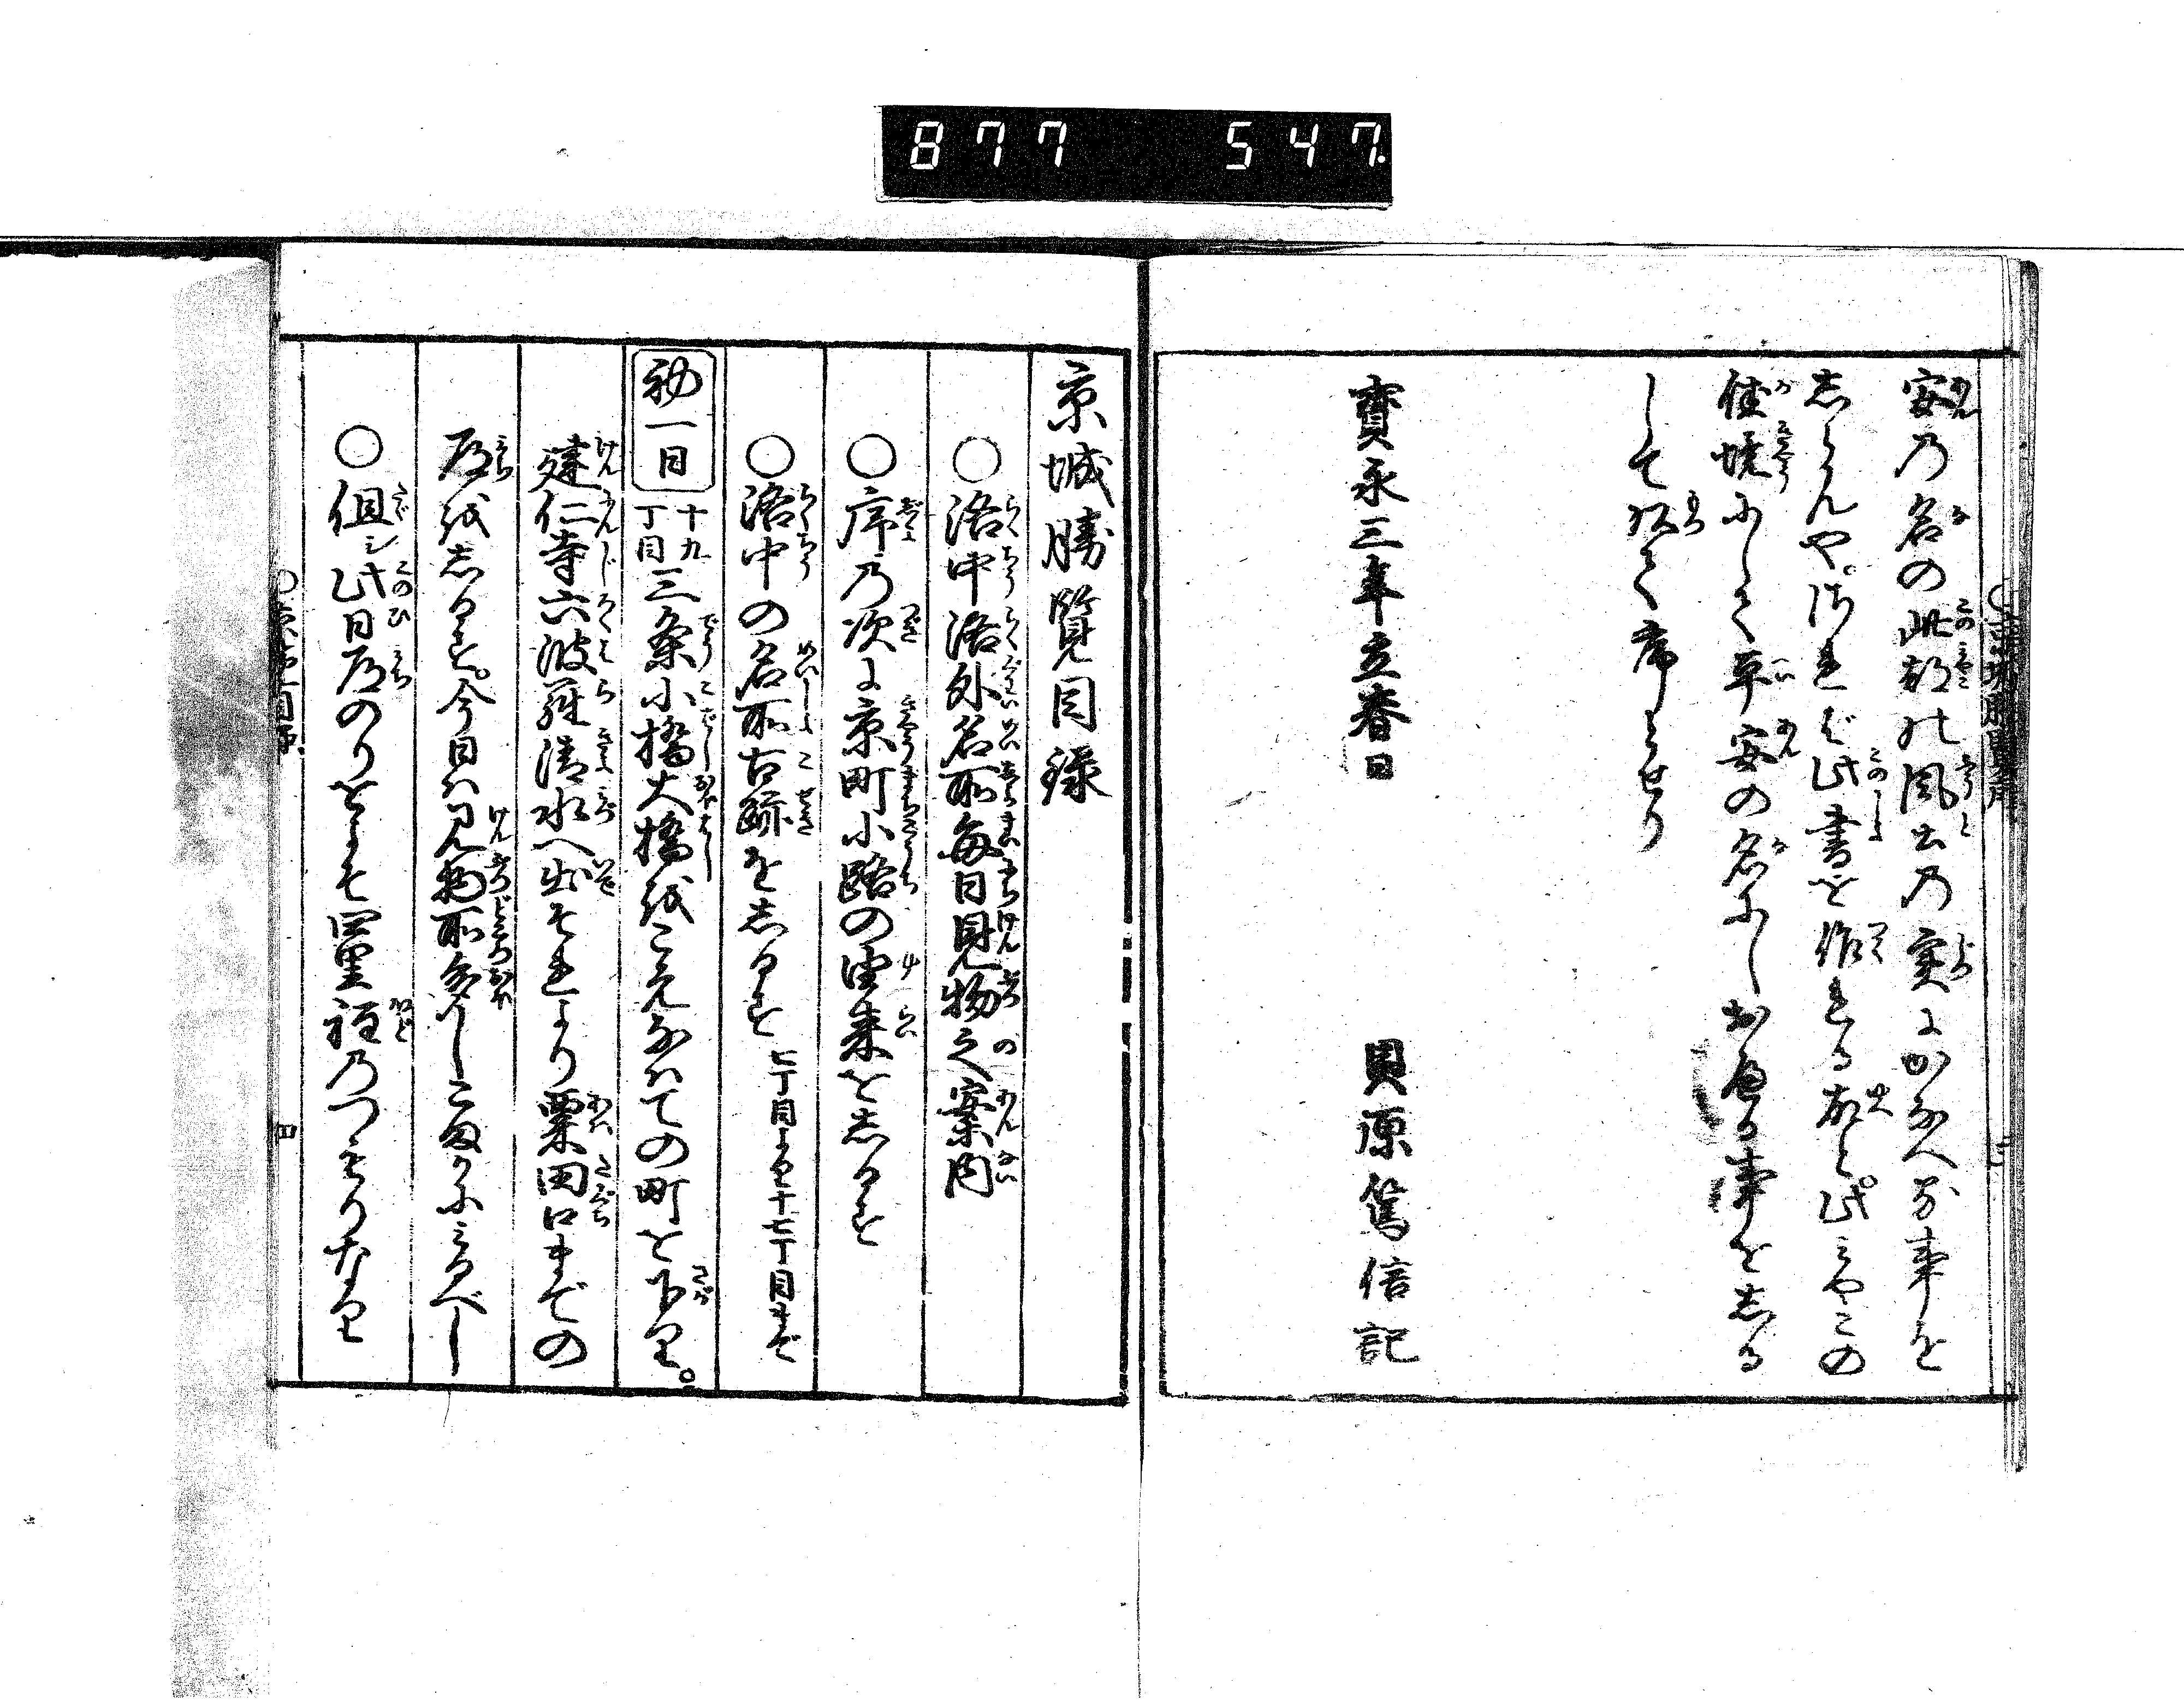 877 547
安の名の此都の風土の実にかなへる事を
志らんや。されば此書を作れる故也。此みやこの
佳境にして平安の名にしおへる事を志る
して以て序とせり
寳永三年立春日
貝原篤信記
京城勝覧目録
○洛中洛外名所毎日見物之案内
○序乃次に京町小路の由来を志るす
○洛中の名所古跡を志るす 七丁目より十七丁目まで
初一日 十九丁目 三条小橋大橋をこえなはての町を下り。
建仁寺六波羅清水へ出それより粟田口までの
道を志るす。今日は見物所多しこまかにみるべし
○但シ此日道のりをよそ四里程のつもりなり